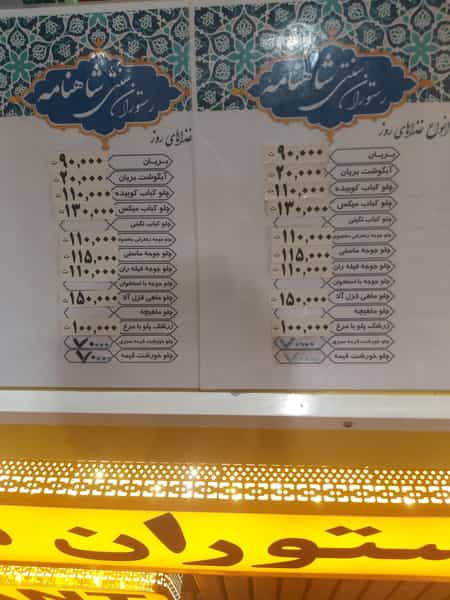 رستوران سنتی شاهنامه
غذاهای روز
بریان ۹۰,۰۰۰ ت
آبگوشت بریان ۲۰,۰۰۰ ت
چلو کباب کوبیده ۱۱۰,۰۰۰ ت
چلو کباب میکس ۱۳۰,۰۰۰ ت
چلو کباب نگینی
چلو جوجه زعفرانی مخصوص ۱۱۰,۰۰۰ ت
چلو جوجه ماستی ۱۱۵,۰۰۰ ت
چلو جوجه فیله ران ۱۱۰,۰۰۰ ت
چلو جوجه با استخوان
چلو ماهی قزل آلا ۱۵۰,۰۰۰ ت
چلو ماهیچه
زرشک پلو با مرغ ۱۰۰,۰۰۰ ت
چلو خورشت قرمه سبزی ۷۰,۰۰۰
چلو خورشت قیمه ۷۰,۰۰۰
رستوران سنتی شاهنامه
انواع غذاهای روز
بریان ۹۰,۰۰۰ ت
آبگوشت بریان ۲۰,۰۰۰ ت
چلو کباب کوبیده ۱۱۰,۰۰۰ ت
چلو کباب میکس ۱۳۰,۰۰۰ ت
چلو کباب نگینی
چلو جوجه زعفرانی مخصوص ۱۱۰,۰۰۰ ت
چلو جوجه ماستی ۱۱۵,۰۰۰ ت
چلو جوجه فیله ران ۱۱۰,۰۰۰ ت
چلو جوجه با استخوان
چلو ماهی قزل آلا ۱۵۰,۰۰۰ ت
چلو ماهیچه
زرشک پلو با مرغ ۱۰۰,۰۰۰ ت
چلو خورشت قرمه سبزی ۷۰,۰۰۰
چلو خورشت قیمه ۷۰,۰۰۰
ستوران